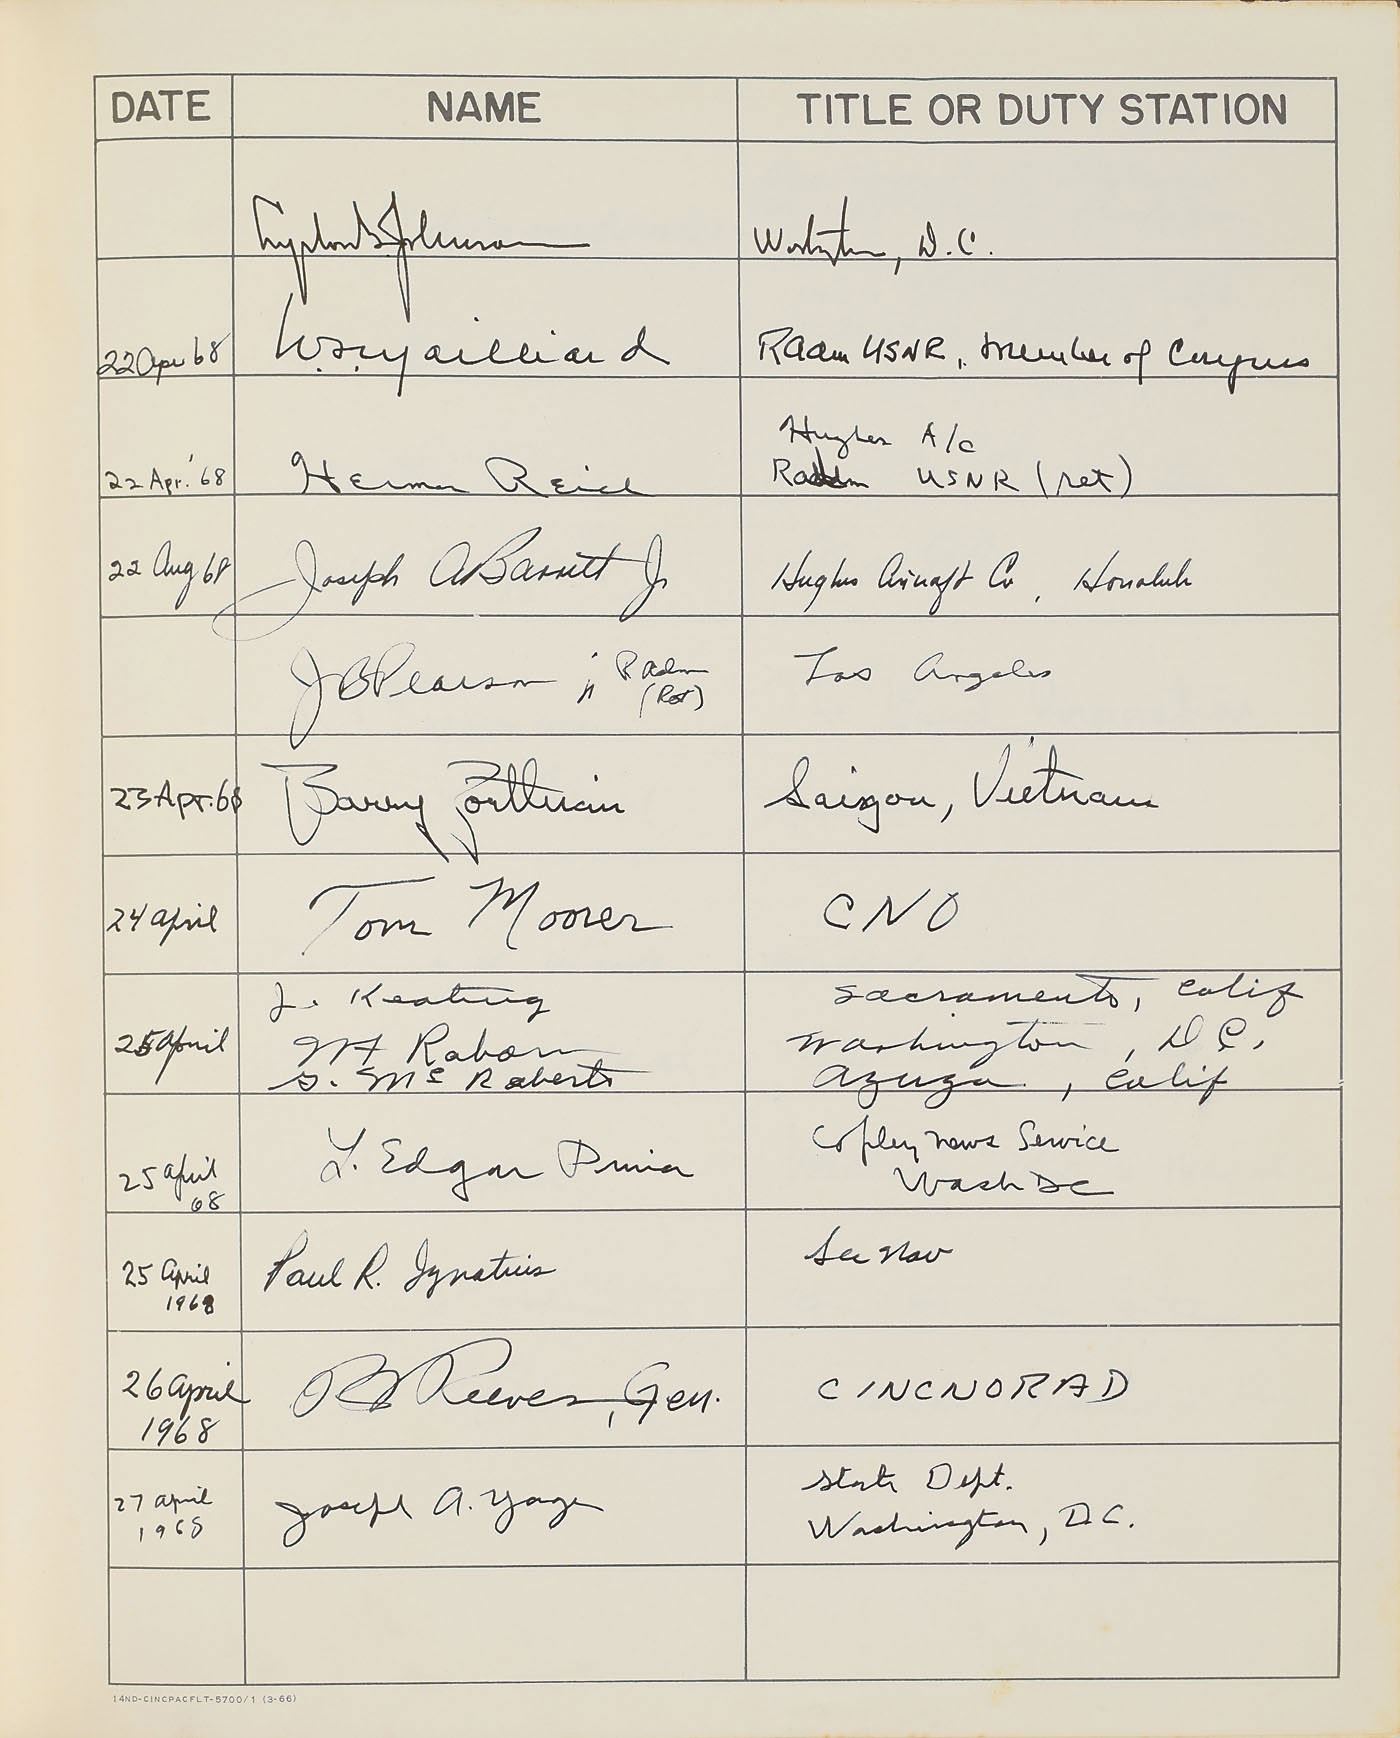 DATE NAME TITLE OR DUTY STATION
Lyndon B Johnson Washington, D.C.
22 Apr 68 W.S. Mailliard Radm USNR, Member of Congress
Hughes A/C
22 Apr. '68 Herman Reich Radm USNR (ret)
22 Aug 68 Joseph A Barrett Jr Hughes Aircraft Co, Honolulu
J B Pearson jr Radm (Ret) Los Angeles
23 Apr. 68 Barry Zorthian Saigon, Vietnam
24 April Tom Moorer CNO
J. Keating Sacramento, Calif
25 April W F Raborn Washington, D.C.
G. McRoberts Azuza, Calif
Copley News Service
25 April L. Edgar Prina Wash DC
68
25 April Paul R. Ignatius SecNav
1968
26 April R J Reeves, Gen. CINCNORAD
1968
State Dept.
27 April Joseph A. Yager
1968 Washington, D.C.
14ND-CINCPACFLT-5700/1 (3-66)